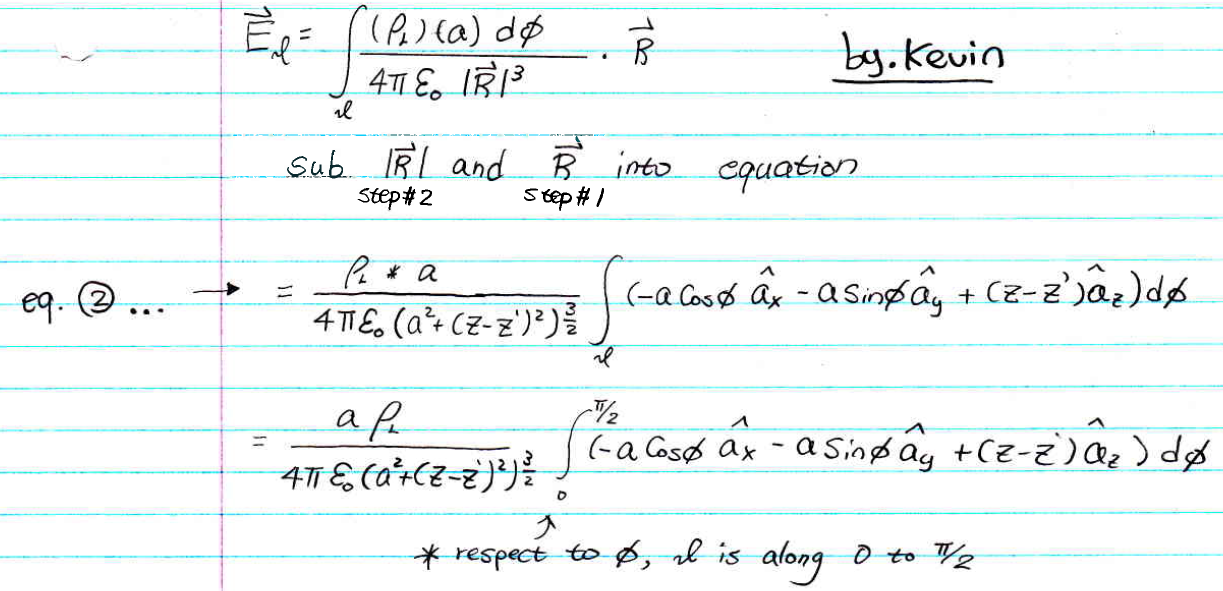 E⃗ₗ = ∫ₗ (ρ_L)(a) dϕ / 4π ε₀ |R⃗|³ · R⃗
by. Kevin
sub |R⃗| and R⃗ into equation
step#2 step#1
eq. ② ... → = ρ_L * a / 4π ε₀ (a² + (z-z')²)^(3/2) ∫ₗ (-a Cosϕ âₓ - a Sinϕ â_y + (z-z') â_z) dϕ
= a ρ_L / 4π ε₀ (a² + (z-z')²)^(3/2) ∫₀^(π/2) (-a Cosϕ âₓ - a Sinϕ â_y + (z-z') â_z) dϕ
↑
* respect to ϕ, l is along 0 to π/2